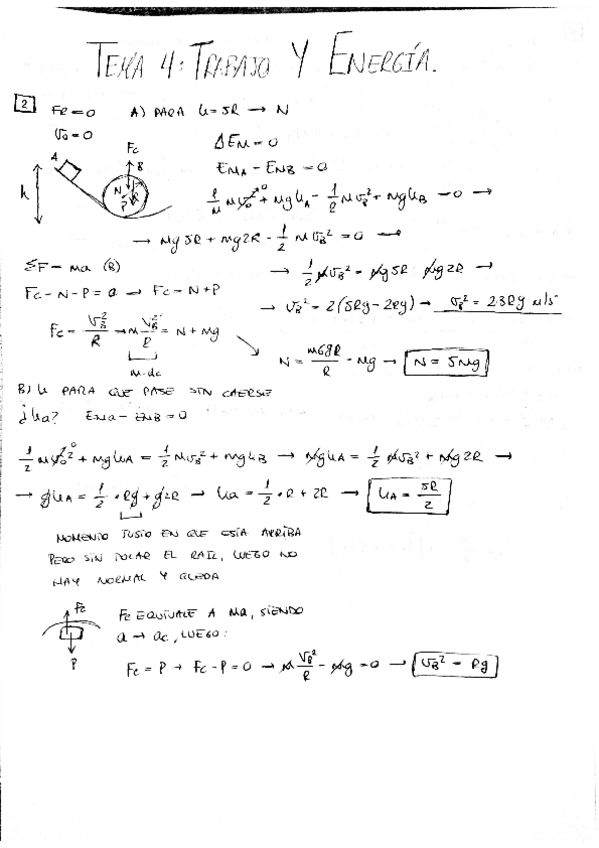 TEMA 4: TRABAJO Y ENERGÍA.
2 FR = 0 A) PARA h = 5R → N
v₀ = 0
ΔEM = 0
EMA - EMB = 0
Fc
A
B
h
N
P
R
½ m v₀² + mghA - ½ m vB² + mghB = 0 →
→ Mg5R + mg2R - ½ m vB² = 0 →
ΣF = ma (B)
→ ½ m vB² = mg5R mg2R →
Fc - N - P = 0 → Fc = N + P
→ vB² = 2(5Rg - 2Rg) → vB² = 2·3Rg m/s
Fc = vB²/R → m vB²/R = N + Mg
m·ac
N = m6gR/R - Mg → N = 5Mg
B) h PARA QUE PASE SIN CAERSE
¿ha? EMa - EMB = 0
½ m v₀² + mghA = ½ m vB² + mghB → mghA = ½ m vB² + mg2R →
→ ghA = ½ · Rg + g2R → ha = ½ · R + 2R → hA = 5R/2
MOMENTO JUSTO EN QUE ESTÁ ARRIBA
PERO SIN TOCAR EL RAIL, LUEGO NO
HAY NORMAL Y QUEDA
Fc
P
Fc EQUIVALE A Ma, SIENDO
a → ac, LUEGO:
Fc = P → Fc - P = 0 → m vB²/R - mg = 0 → vB² = Rg